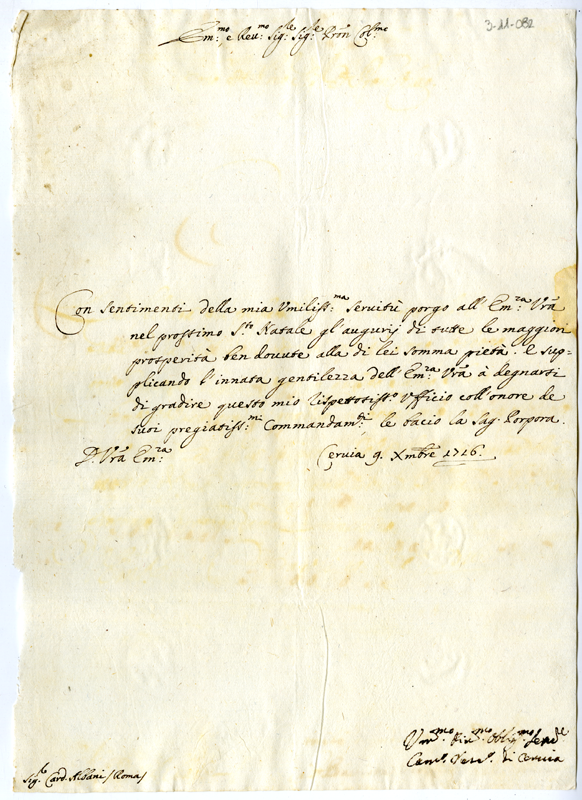 3-11-082
Em:mo e Reu:mo Sig:re Sig:re Pron Col:mo
Con sentimenti della mia Vmiliss:ma seruitù porgo all Em:za Vrã
nel prossimo S:to Natale gl'augurij di tutte le maggiori
prosperità ben douute alla di lei somma pietà. e sup=
plicando l'innata gentilezza dell'Em:za Vrã à degnarsi
di gradire questo mio rispettosiss:o Vfficio coll'onore de
suoi pregiatiss:mi Commandam:ti le bacio la Sag: Porpora.
D: Vrã Em:za
Ceruia 9. Xmbre 1716.
Vm:mo Diu:mo Obblig:mo
di Ceruia
Sig:re Card. Albani /Roma/